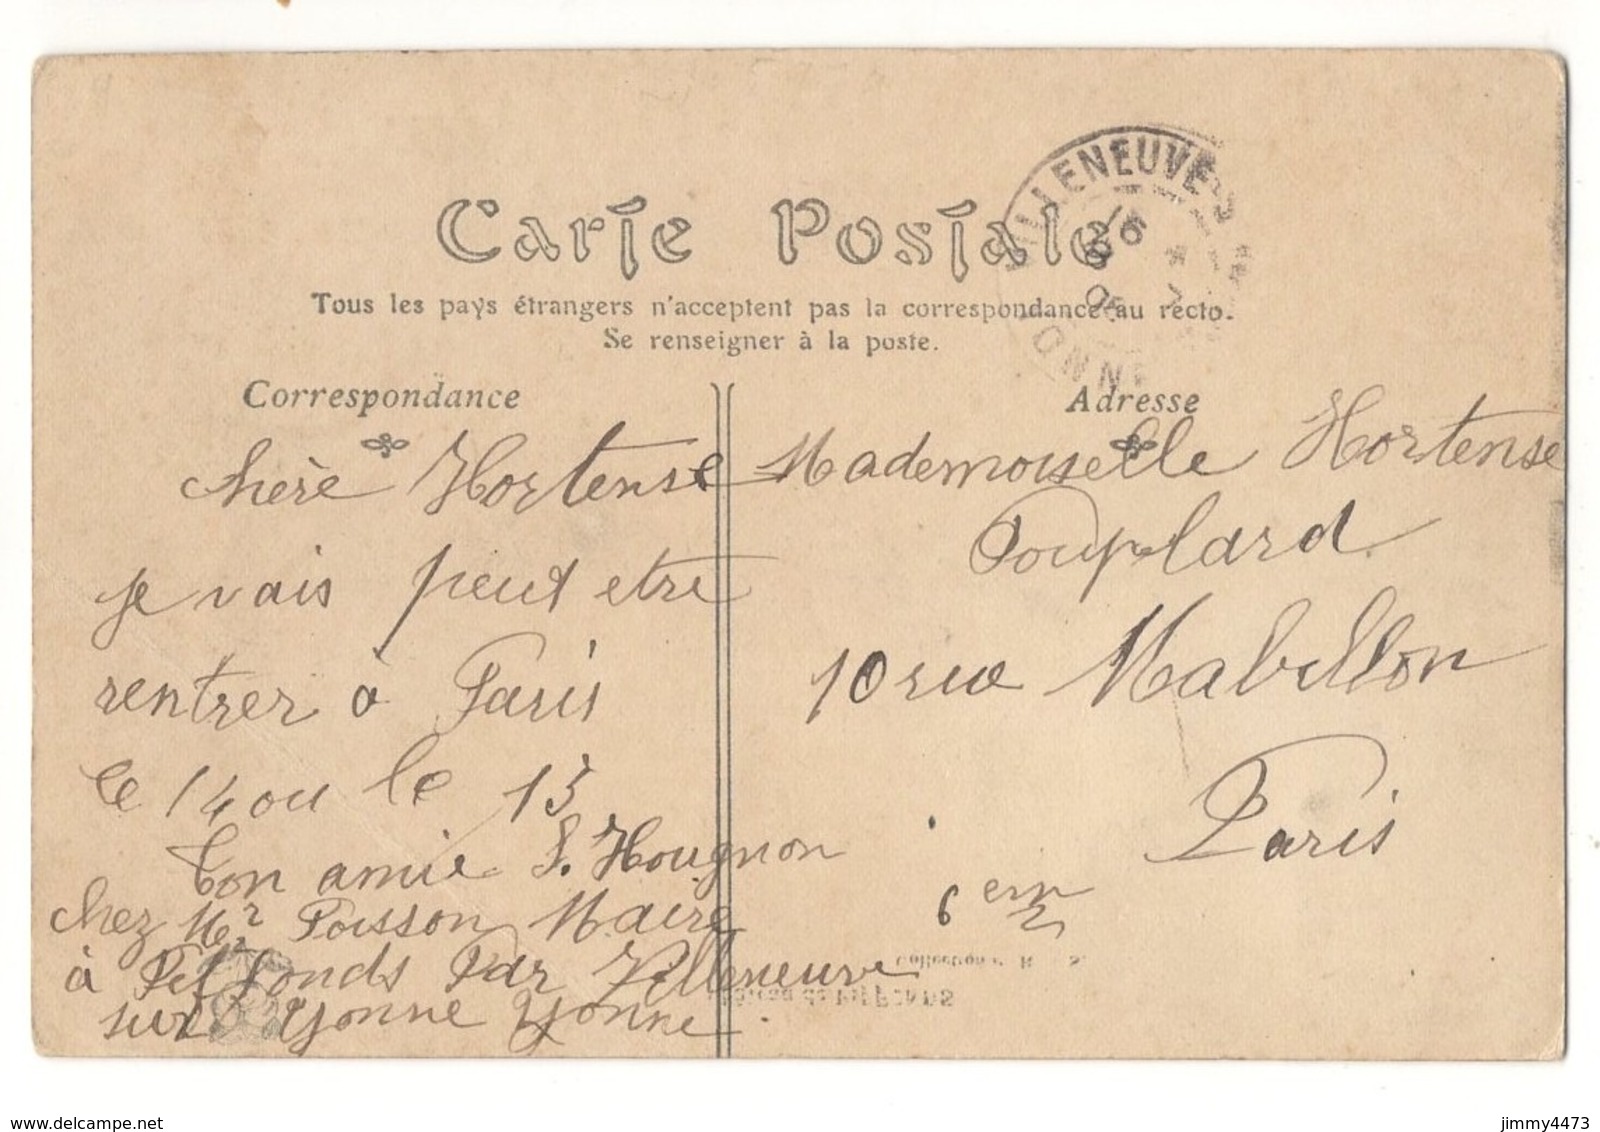 Carte Postale
Tous les pays étrangers n'acceptent pas la correspondance au recto.
Se renseigner à la poste.
Correspondance
chère Hortense
je vais peut etre
rentrer à Paris
le 14 ou le 15
Ton amie S. Hougnon
chez Mr Poisson Maire
à Pet fonds Par Villeneuve
sur Yonne Yonne.
Adresse
Mademoiselle Hortense
Pouplard
10 rue Mabillon
Paris
6 em
VILLENEUVE
www.delcampe.net
jimmy4473